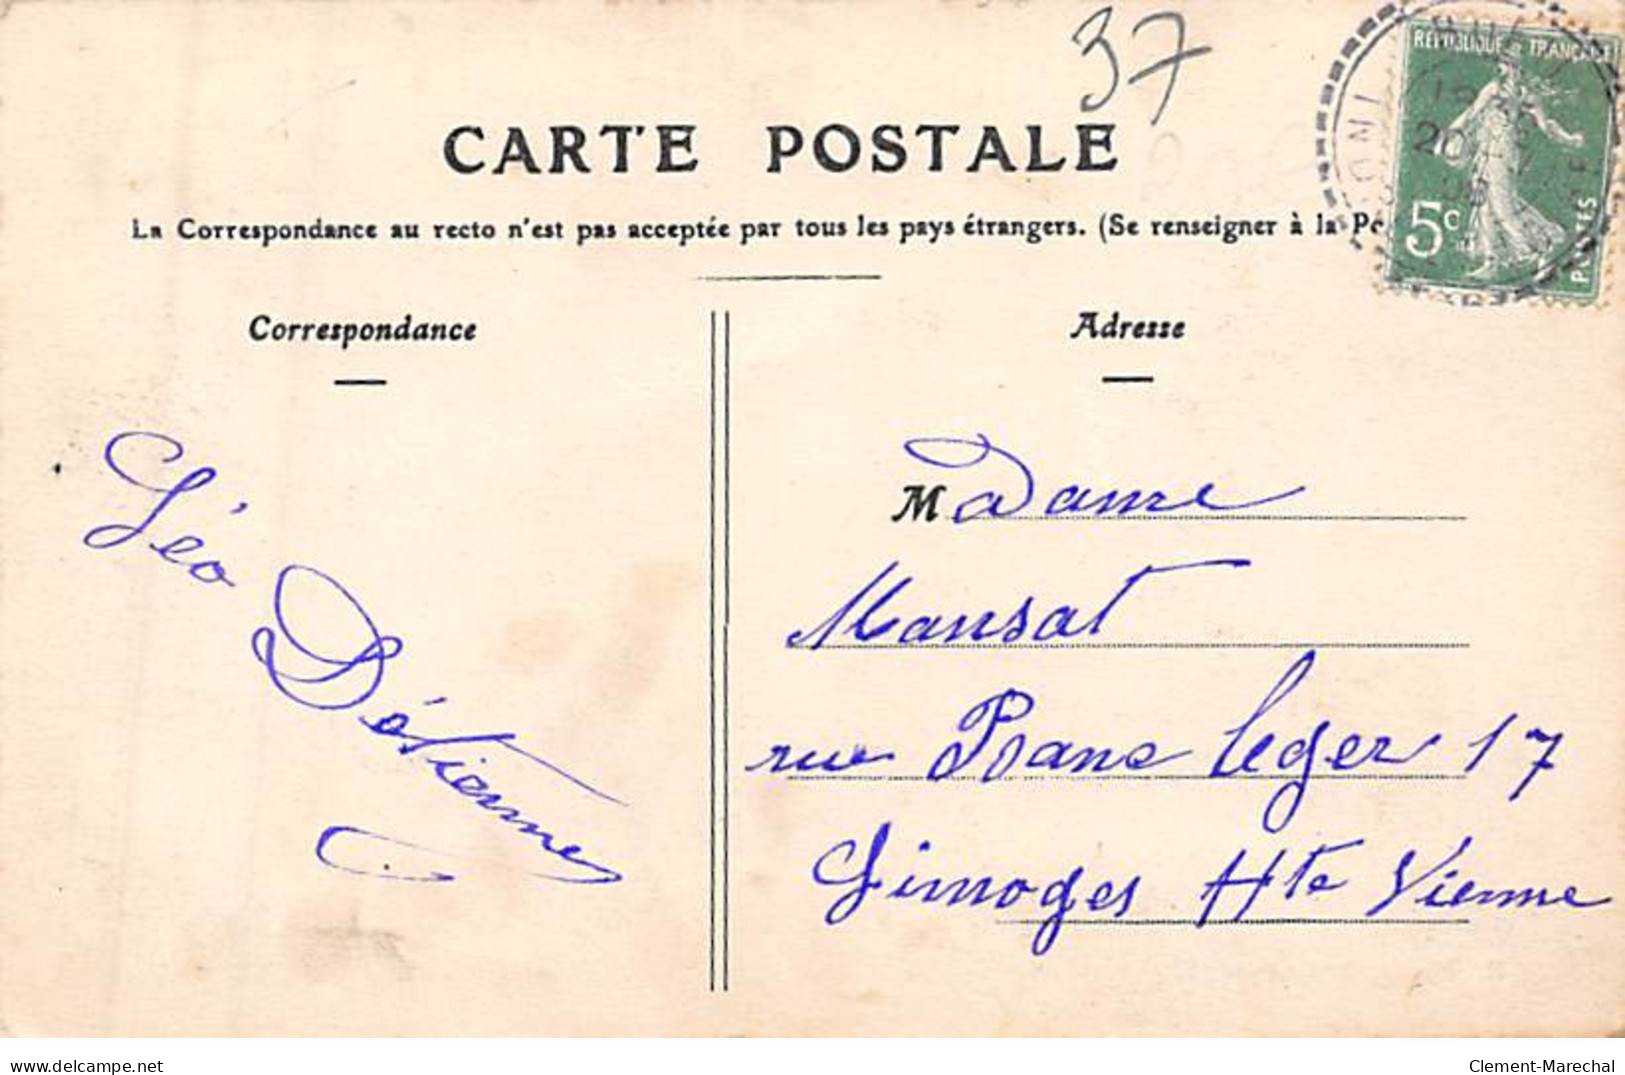 37
RÉPUBLIQUE FRANÇAISE
CARTE POSTALE
20
5c
POSTES
La Correspondance au recto n'est pas acceptée par tous les pays étrangers. (Se renseigner à la Po
Correspondance
Adresse
Léo Détienne
Madame
Mansat
rue Leger 17
Limoges Hte Vienne
www.delcampe.net
Clement-Marechal